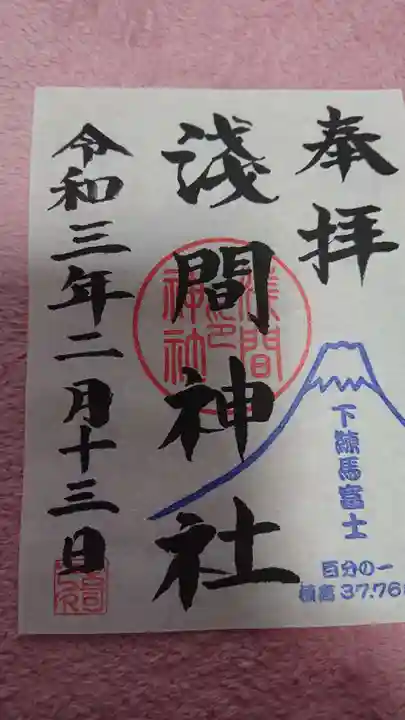 奉拝
淺間神社
淺間神社印
下練馬富士
百分の一
標高37.76
令和三年二月十三日